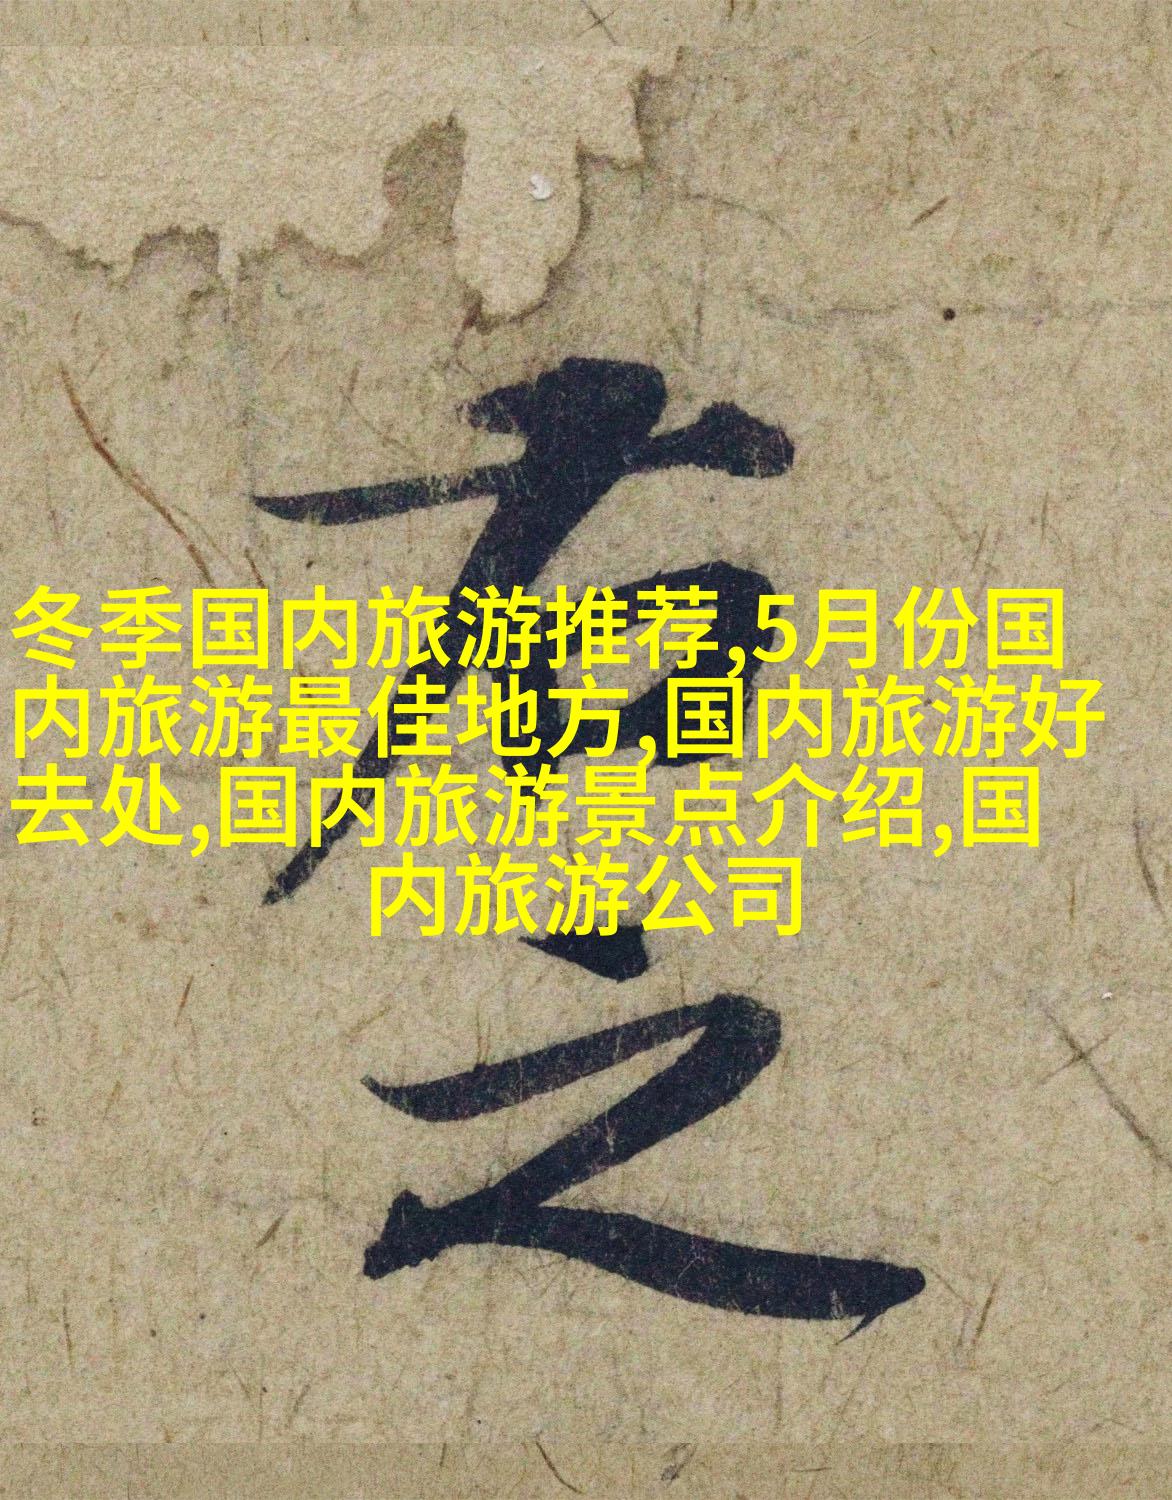 冬季国内旅游推荐,5月份国
内旅游最佳地方,国内旅游好
去处,国内旅游景点介绍,国
内旅游公司
右
之